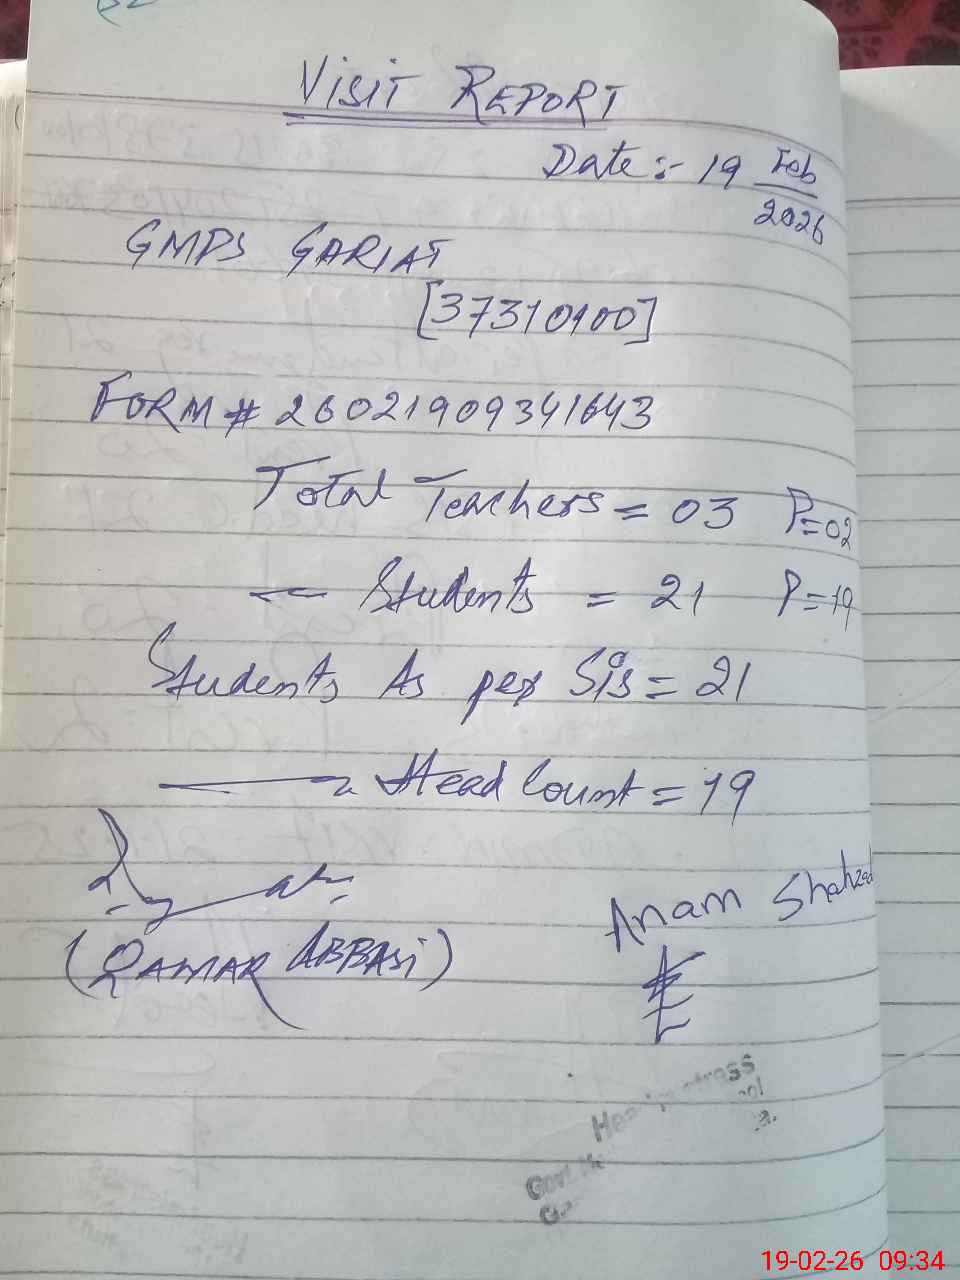 VISIT REPORT
Date :- 19 Feb
2026
GMPS GARIAT
[37310100]
FORM # 26021909341643
Total Teachers = 03 P=02
Students = 21 P=19
Students As per Sis = 21
Head Count = 19
Anam Shahzad
(QAMAR ABBASi)
Headmistress
Govt.
19-02-26 09:34